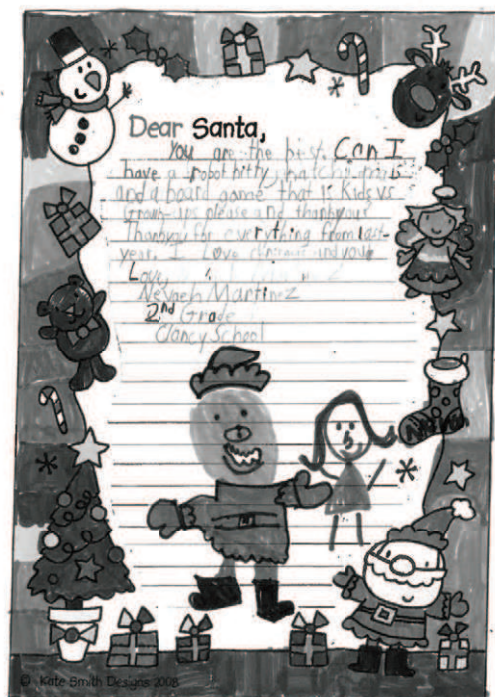 Dear Santa,
You are the best. Can I
have a robot kitty, hatchimals
and a board game that is Kids vs
Grown-ups please and thankyou!
Thankyou for everything from last
year. I Love and you
Love,
Nevaeh Martinez
2nd Grade
Clancy School
© Kate Smith Designs 2008